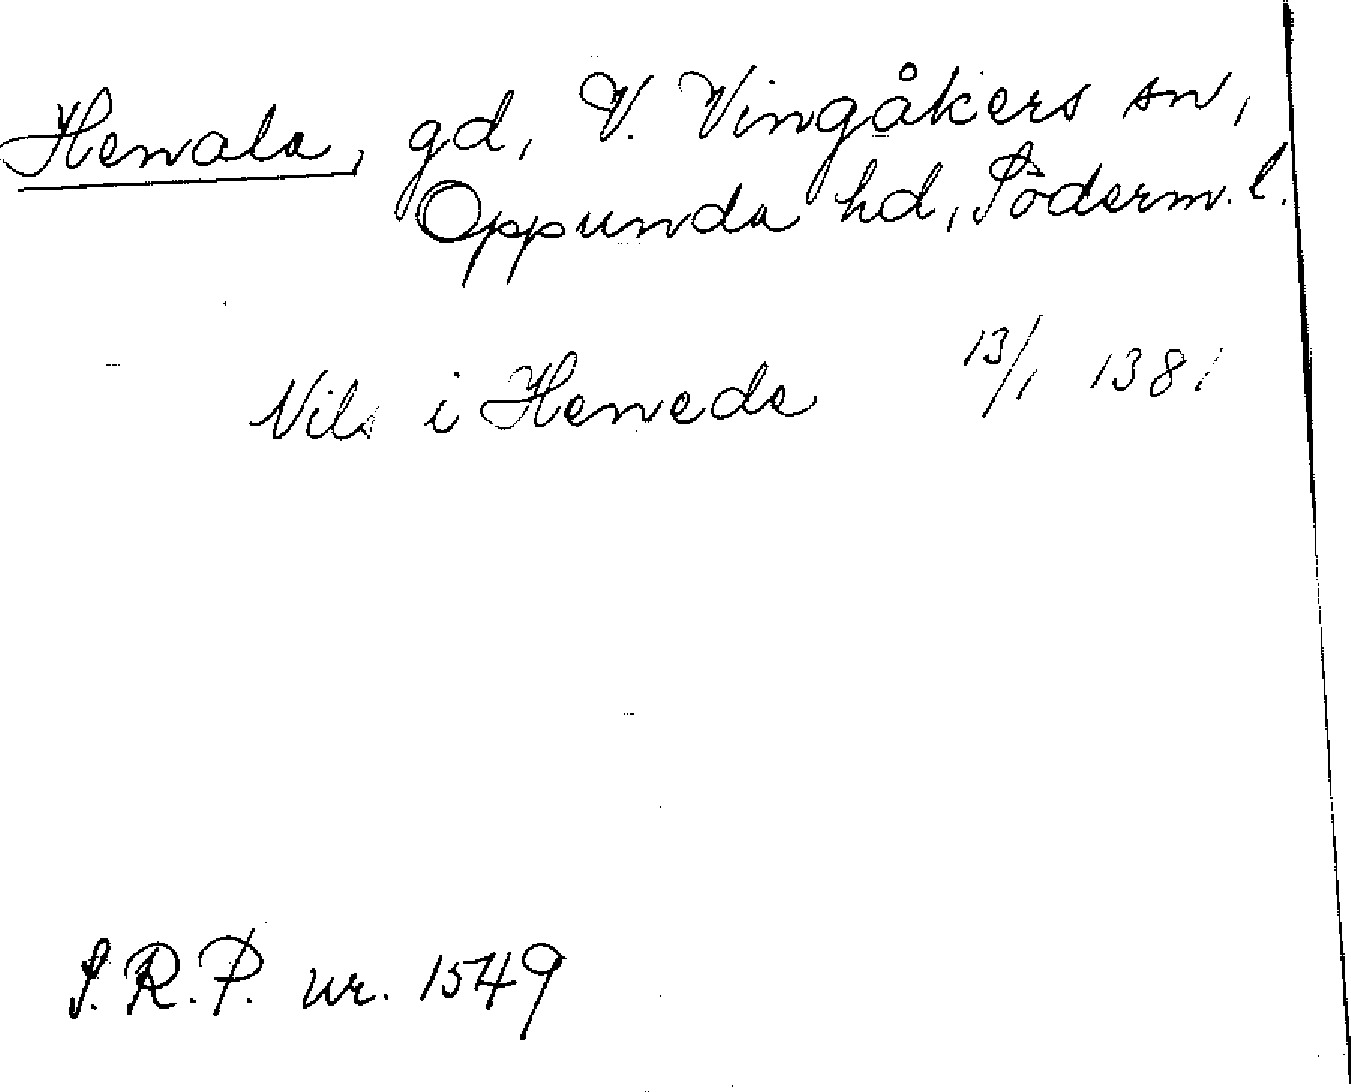 Henala, gd, V. Vingåkers sn,
Oppunda hd, Söderm. l.
Nils i Heneda 13/1 1381
S.R.P. nr. 1549